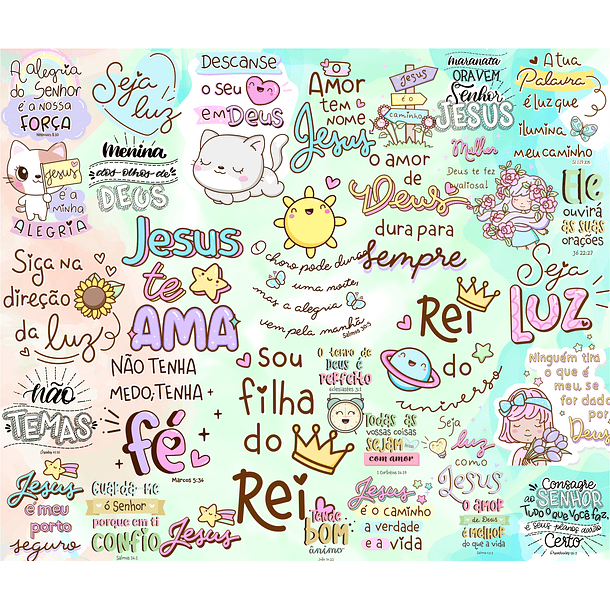 A Alegria
do Senhor
é a nossa
FORÇA
Neemias 8:10
Seja
luz
Descanse
o seu
em Deus
Amor
tem
nome
Jesus
Jesus
é o
caminho
maranata
ORA VEM,
Senhor
JESUS
A tua
Palavra
é luz que
ilumina
meu caminho
Jesus
é a
minha
ALEGRIA
menina
dos olhos de
DEUS
o amor
de
Deus
dura para
sempre
Mulher
Deus te fez
valiosa!
Ele
ouvirá
as suas
orações
Jó 22:27
Siga na
direção
da luz
Jesus
te
AMA
o choro pode durar
uma noite,
mas a alegria
vem pela manhã
Salmos 30:5
Rei
do
universo
Seja
LUZ
não
TEMAS
NÃO TENHA
MEDO, TENHA
fé
Marcos 5:36
Sou
filha
do
Rei
O tempo de
Deus é
perfeito
Eclesiastes 3:1
Todas as
vossas coisas
SEJAM feitas
com amor
1 Coríntios 16:14
Seja
luz
como
Jesus
Ninguém tira
o que é
meu, se
for dado
por
Deus
Jesus
é meu
porto
seguro
Guarda-me
ó Senhor
porque em ti
CONFIO
Salmos 16:1
Jesus
Tende
BOM
ânimo
João 16:33
Jesus
é o caminho
a verdade
e a vida
O amor
de Deus
é melhor
do que a vida
Salmos 63:3
Consagre
ao SENHOR
Tudo o que você faz,
e seus planos darão
Certo
Provérbios 16:3